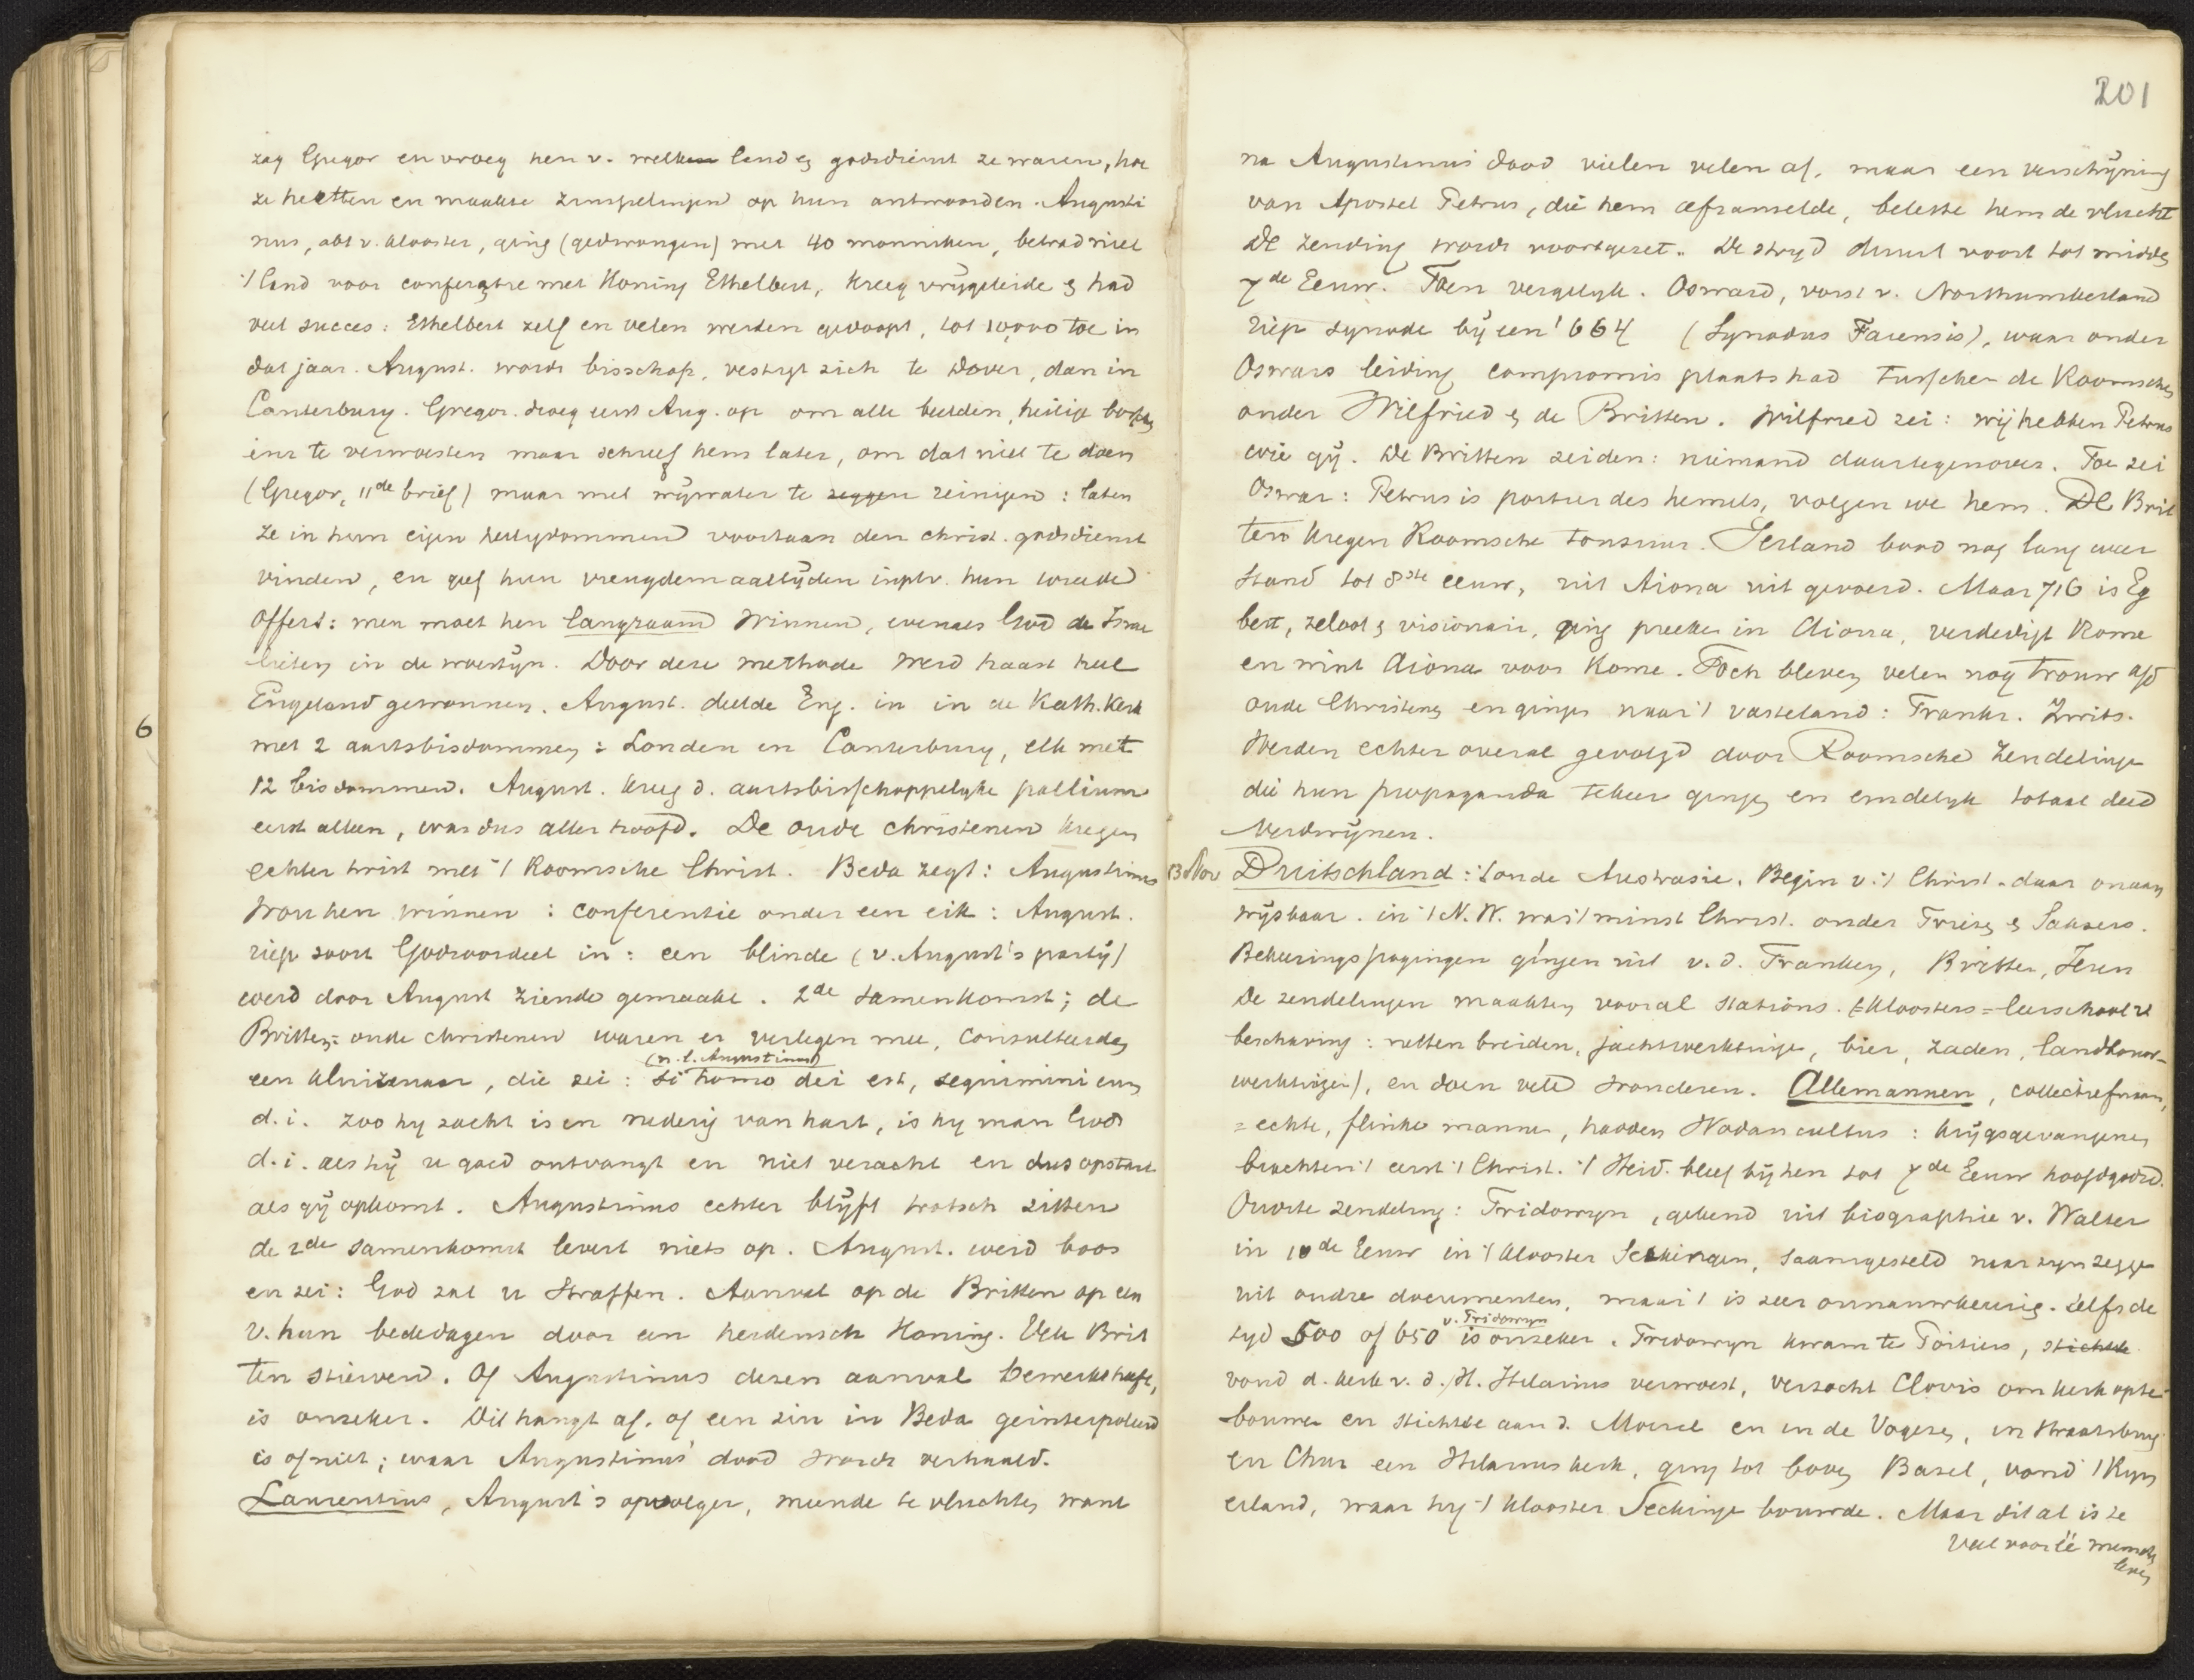 zag Gregor en vroeg hen v. welken land en godsdienst ze waren, hoe
ze heetten en maakte zinspelingen op hun antwoorden. Augusti
nus, abt v. klooster, ging (gedwongen) met 40 monniken, betrad niet
't land voor conferentie met Koning Ethelbert, kreeg vrijgeleide en had
veel succes: Ethelbert zelf en velen werden gedoopt, tot 10,000 toe in
dat jaar. August. wordt bisschop, vestigt zich te Dover, dan in
Canterbury. Gregor. droeg eerst Aug. op om alle beelden, heilige bosschen
enz te verwoesten maar schreef hem later, om dat niet te doen
(Gregor, 11de brief) maar met wijwater te zeggen reinigen: laten
ze in hun eigen heiligdommen voortaan den christ. godsdienst
vinden, en geef hun vreugdemaaltijden in plv. hun wreede
offers: men moet hen langzaam winnen, evenals God de Israe
lieten in de woestijn. Door deze methode werd haast heel
Engeland gewonnen. August. deelde Eng. in in de Kath. Kerk
6
met 2 aartsbisdommen: Londen en Canterbury, elk met
12 bisdommen. August. kreeg d. aartsbisschoppelijke pallium
eerst alleen, was dus aller hoofd. De oude christenen kregen
echter twist met 't Roomsche Christ. Beda zegt: Augustinus
wou hen winnen: conferentie onder een eik: August.
riep soort Godsoordeel in: een blinde (v. August's partij)
werd door August ziende gemaakt. 2de samenkomst; de
Britten = oude christenen waren er verlegen mee, consulteerden
(n.l. Augustinus)
een kluizenaar, die zei: si homo dei est, sequimini eum
d.i. zoo hij zacht is en nederig van hart, is hij man Gods
d.i. als hij u goed ontvangt en niet veracht en dus opstaat
als gij opkomt. Augustinus echter blijft trotsch zitten
de 2de samenkomst levert niets op. August. werd boos
en zei: God zal u straffen. Aanval op de Britten op een
v. hun bededagen door een heidensch Koning. Vele Brit
ten stierven. Of Augustinus dezen aanval bewerkt heeft,
is onzeker. Dit hangt af, of een zin in Beda geinterpoleerd
is of niet; waar Augustinus' dood wordt verhaald.
Laurentius, August's opvolger, meende te vluchten want
201
na Augustinus dood vielen velen af, maar een verschijning
van Apostel Petrus, die hem afranselde, belette hem de vlucht
De zending wordt voortgezet. De strijd duurt voort tot midden
7de Eeuw. Toen vergelijk. Osward, vorst v. Northumberland
riep synode bijeen 664 (Synodus Farensis), waar onder
Oswars leiding compromis plaats had tusschen de Roomschen
onder Wilfried en de Britten. Wilfried zei: wij hebben Petrus
wie gij. De Britten zeiden: niemand daartegenover. Toe zei
Oswar: Petrus is portier des hemels, volgen we hem. De Brit
ten kregen Roomsche tonsuur. Ierland bood nog lang weer
stand tot 8ste eeuw, uit Aiona uit gevoerd. Maar 716 is Eg
bert, zeloot en visionair, ging preeken in Aiona, verdedigt Rome
en wint Aiona voor Rome. Toch bleven velen nog trouw a/d
oude Christenen en gingen naar 't vasteland: Frankr. Zwits.
Werden echter overal gevolgd door Roomsche Zendelingen
die hun propaganda tekeer gingen en eindelijk totaal deed
verdwijnen.
13 Nov Duitschland: 't oude Austrasie. Begin v. 't Christ. daar onaan
wijsbaar. in 't N.W. was 't minst Christ. onder Friezen en Saksers.
Bekeeringspogingen gingen uit v.d. Franken, Britten, Ieren
De zendelingen maakten vooral stations. (=kloosters = leerschool v.
beschaving: netten breiden, jachtwerktuigen, bier, zaden, landbouw-
werktuigen), en doen vele wonderen. Allemannen, collectiefnaam,
= echte, flinke mannen, hadden Wodancultus: krijgsgevangenen
brachten 't eerst 't Christ. 't Heid. bleef bij hen tot 7de Eeuw hoofdgodsd.
Oudste zendeling: Fridowyn, gekend uit biographie v. Walter
in 10de Eeuw in 't klooster Seckingen, saamgesteld naar zijn zeggen
uit oudre documenten, maar 't is zeer onnauwkeurig. Zelfs de
v. Fridowyn
tijd 500 of 650 is onzeker. Fridowyn kwam te Poitiers, stichtte
vond d. kerk v. d. H. Hilarius verwoest, verzocht Clovis om kerk opte
bouwen en stichtte aan d. Moesel en in de Vogezen, in Straatsburg
en Chur een Hilariuskerk, ging tot boven Basel, vond 't Rijn
eiland, waar hij 't klooster Seckingen bouwde. Maar dit al is te
veel voor 1é menschen
leven